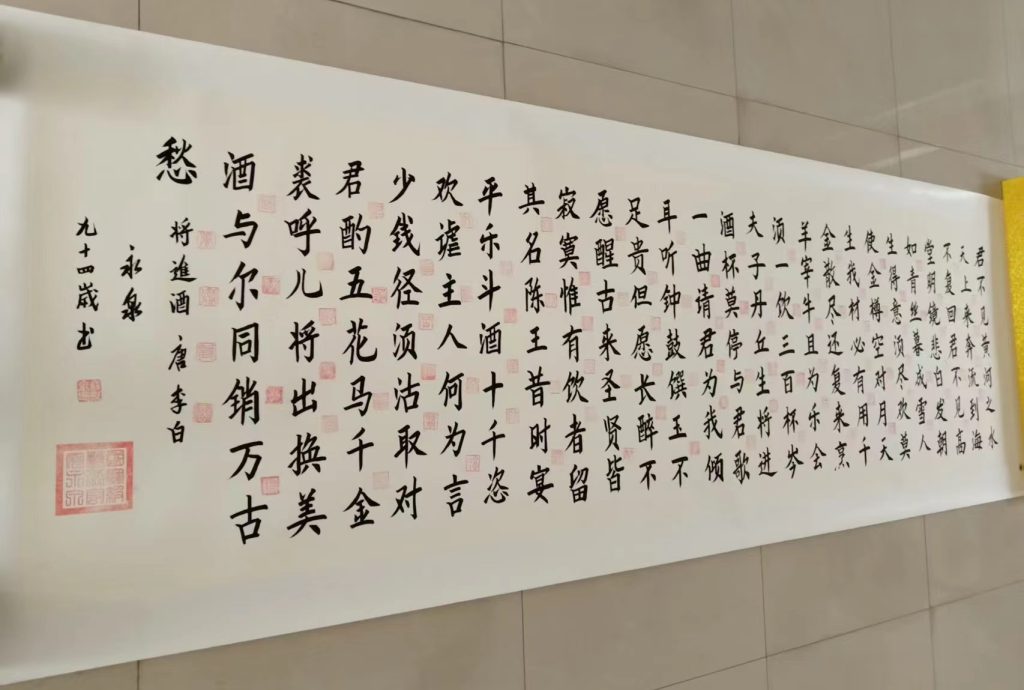 君不见黄河之水
天上来奔流到海
不复回君不见高
堂明镜悲白发朝
如青丝暮成雪人
生得意须尽欢莫
使金樽空对月天
生我材必有用千
金散尽还复来烹
羊宰牛且为乐会
须一饮三百杯岑
夫子丹丘生将进
酒杯莫停与君歌
一曲请君为我倾
耳听钟鼓馔玉不
足贵但愿长醉不
愿醒古来圣贤皆
寂寞惟有饮者留
其名陈王昔时宴
平乐斗酒十千恣
欢谑主人何为言
少钱径须沽取对
君酌五花马千金
裘呼儿将出换美
酒与尔同销万古
愁
将進酒 唐 李白
永泉
九十四嵗书